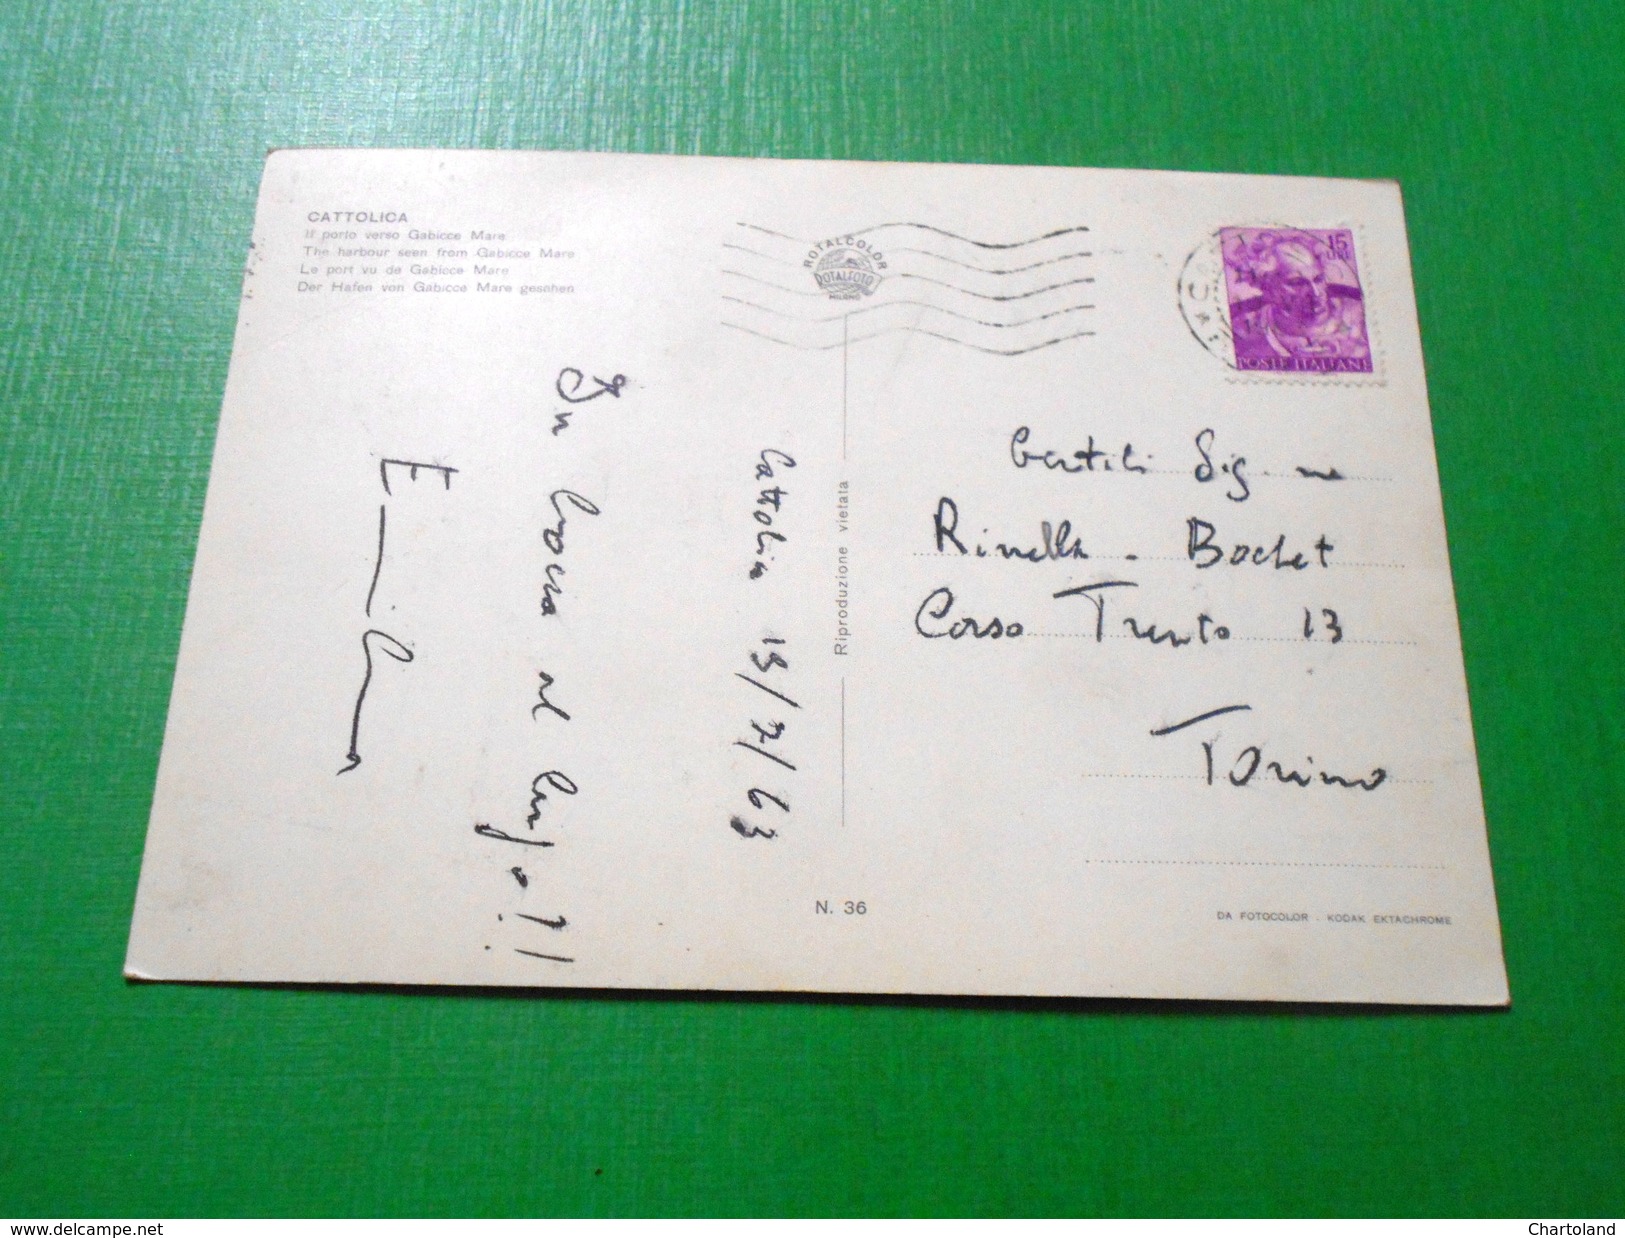 CATTOLICA
Il porto verso Gabicce Mare
The harbour seen from Gabicce Mare
Le port vu de Gabicce Mare
Der Hafen von Gabicce Mare gesehen
ROTALCOLOR
ROTALFOTO
MILANO
15
LIRE
POSTE ITALIANE
Cattolica 19/7/63
In bocca al lupo!!!
Riproduzione vietata
Gentili Sig.ne
Rinella - Bochet
Corso Trento 13
Torino
N. 36
DA FOTOCOLOR - KODAK EKTACHROME
www.delcampe.net
Chartoland